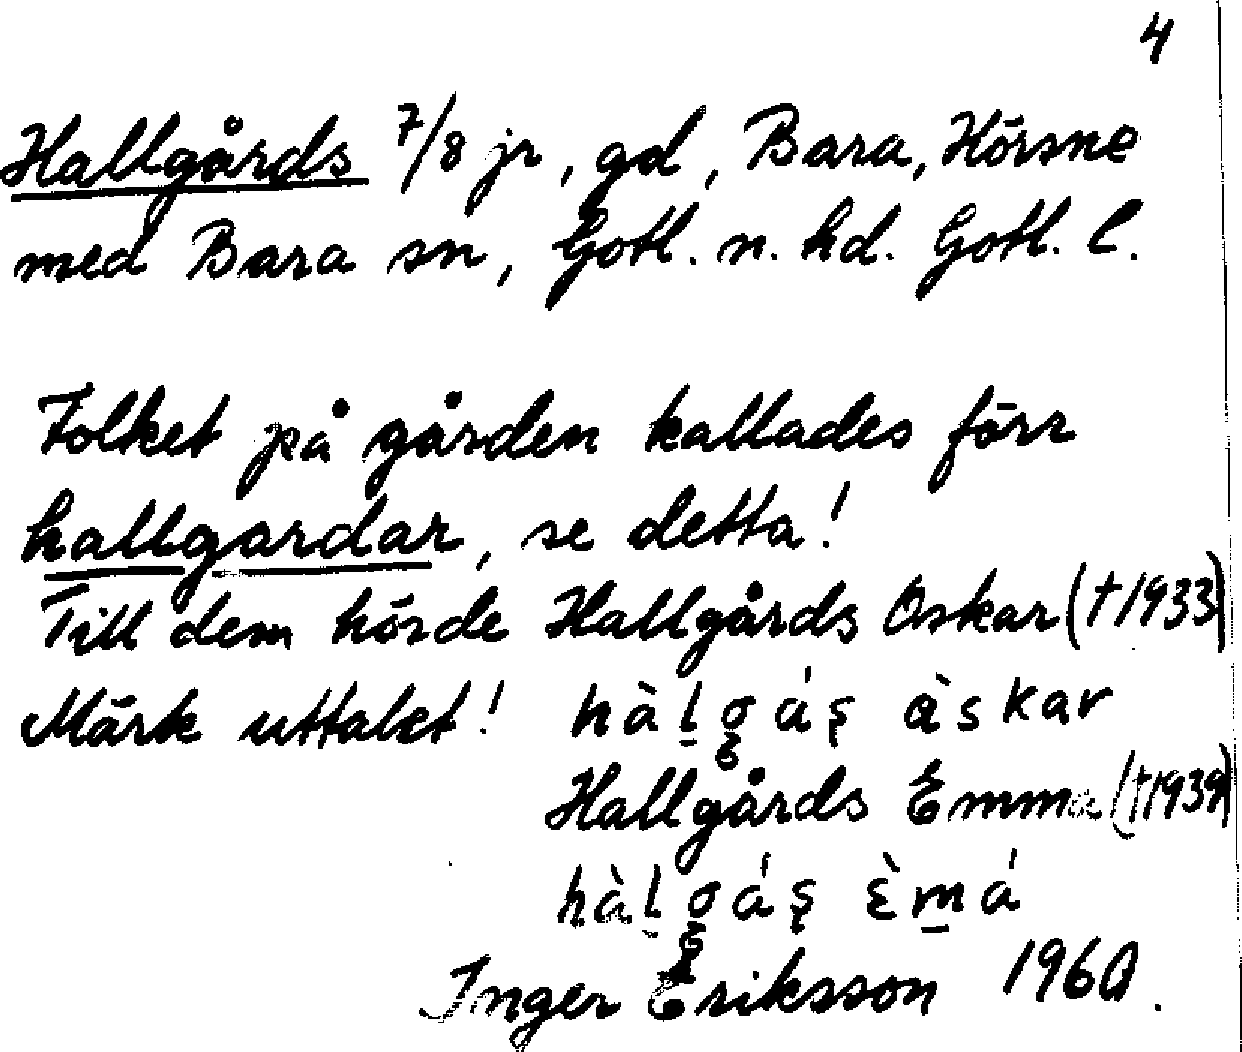 4
Hallgårds 7/8 jr, gd, Bara, Hörsne
med Bara sn, Gotl. n. hd. Gotl. l.
Folket på gården kallades förr
hallgardar, se detta!
Till dem hörde Hallgårds Oskar († 1933)
Märk uttalet!
Hallgårds Emma († 1939)
Inger Eriksson 1960.